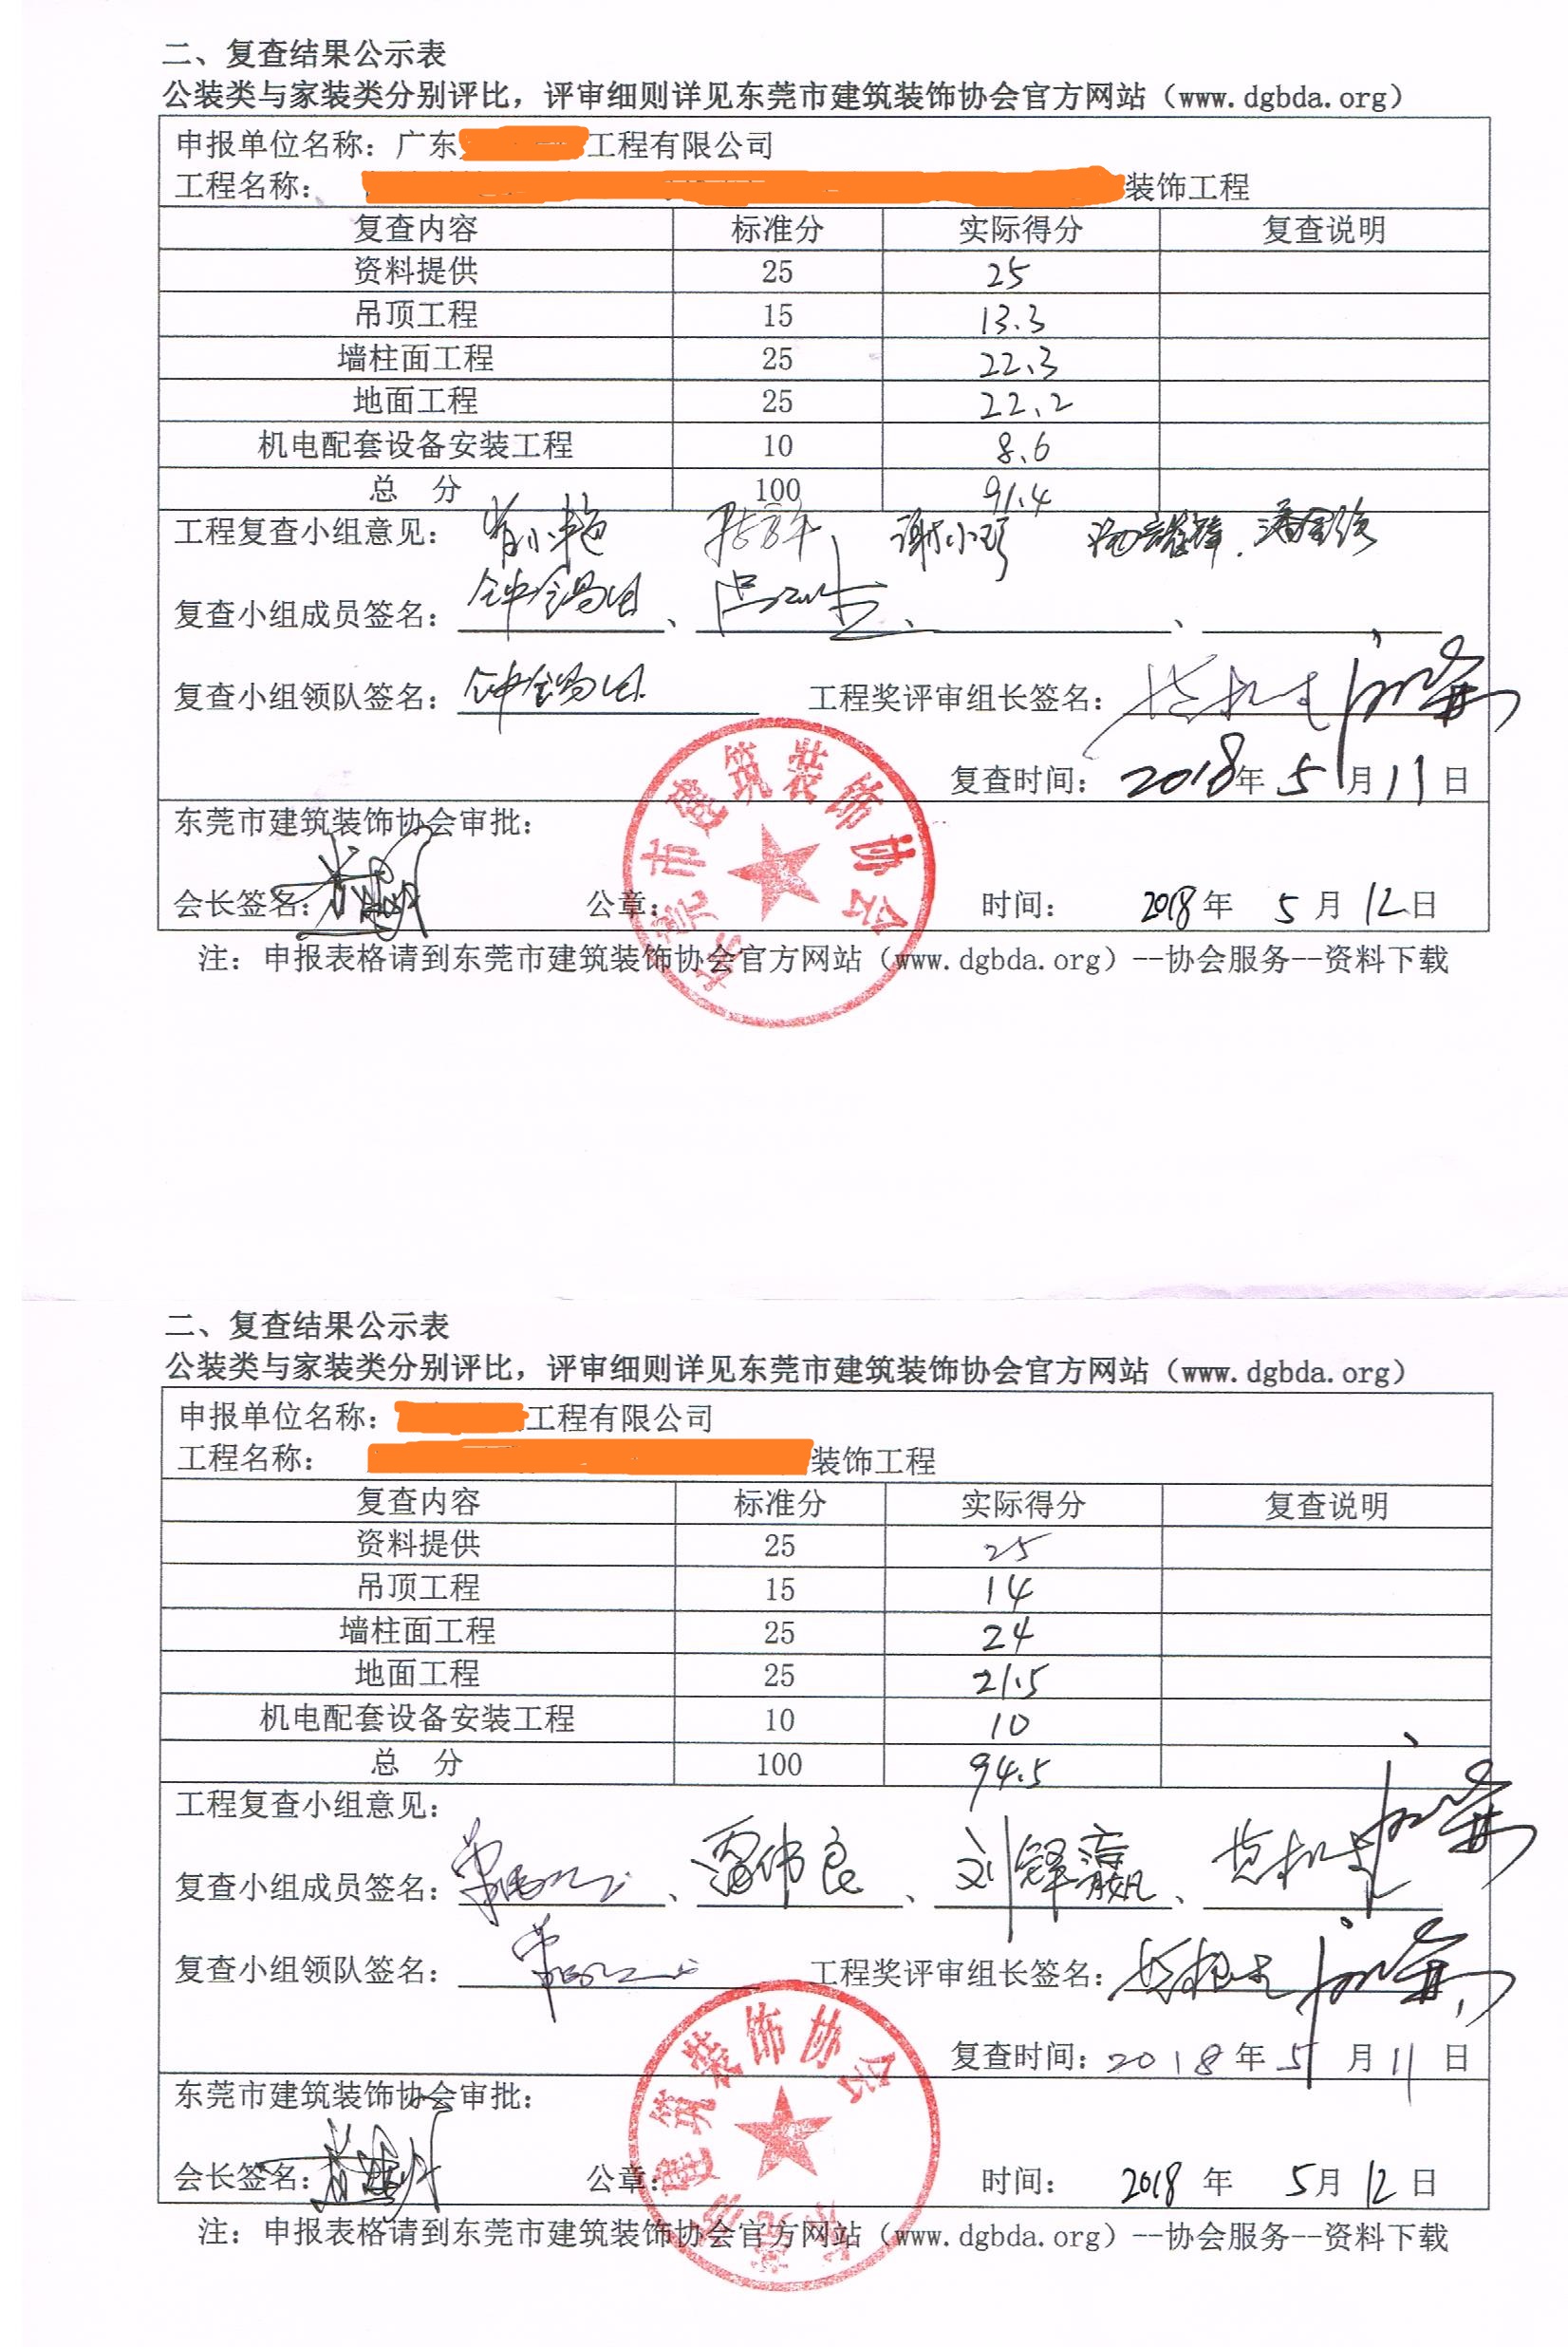 二、复查结果公示表
公装类与家装类分别评比，评审细则详见东莞市建筑装饰协会官方网站（www.dgbda.org）
申报单位名称：广东 工程有限公司
工程名称： 装饰工程
复查内容 标准分 实际得分 复查说明
资料提供 25 25
吊顶工程 15 13.3
墙柱面工程 25 22.3
地面工程 25 22.2
机电配套设备安装工程 10 8.6
总 分 100 91.4
工程复查小组意见： 谢小
复查小组成员签名： 、 、 、
复查小组领队签名： 工程奖评审组长签名：
复查时间：2018年5月11日
东莞市建筑装饰协会审批：
会长签名： 公章： 时间： 2018年 5月12日
东莞市建筑装饰协会
注：申报表格请到东莞市建筑装饰协会官方网站（www.dgbda.org）--协会服务--资料下载
二、复查结果公示表
公装类与家装类分别评比，评审细则详见东莞市建筑装饰协会官方网站（www.dgbda.org）
申报单位名称： 工程有限公司
工程名称： 装饰工程
复查内容 标准分 实际得分 复查说明
资料提供 25 25
吊顶工程 15 14
墙柱面工程 25 24
地面工程 25 21.5
机电配套设备安装工程 10 10
总 分 100 94.5
工程复查小组意见：
复查小组成员签名： 、 伟良、刘 、
复查小组领队签名： 工程奖评审组长签名：
复查时间：2018年5月11日
东莞市建筑装饰协会审批：
会长签名： 公章： 时间： 2018年 5月12日
东莞市建筑装饰协会
注：申报表格请到东莞市建筑装饰协会官方网站（www.dgbda.org）--协会服务--资料下载